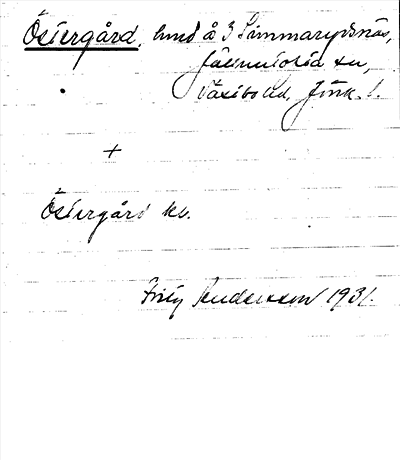 Östergård, hmd å 3 Simmarydsnäs,
Färintofta sn,
Västbo hd, Jönk. l.
+
Östergård kv.
Fritz Andersson 1931.